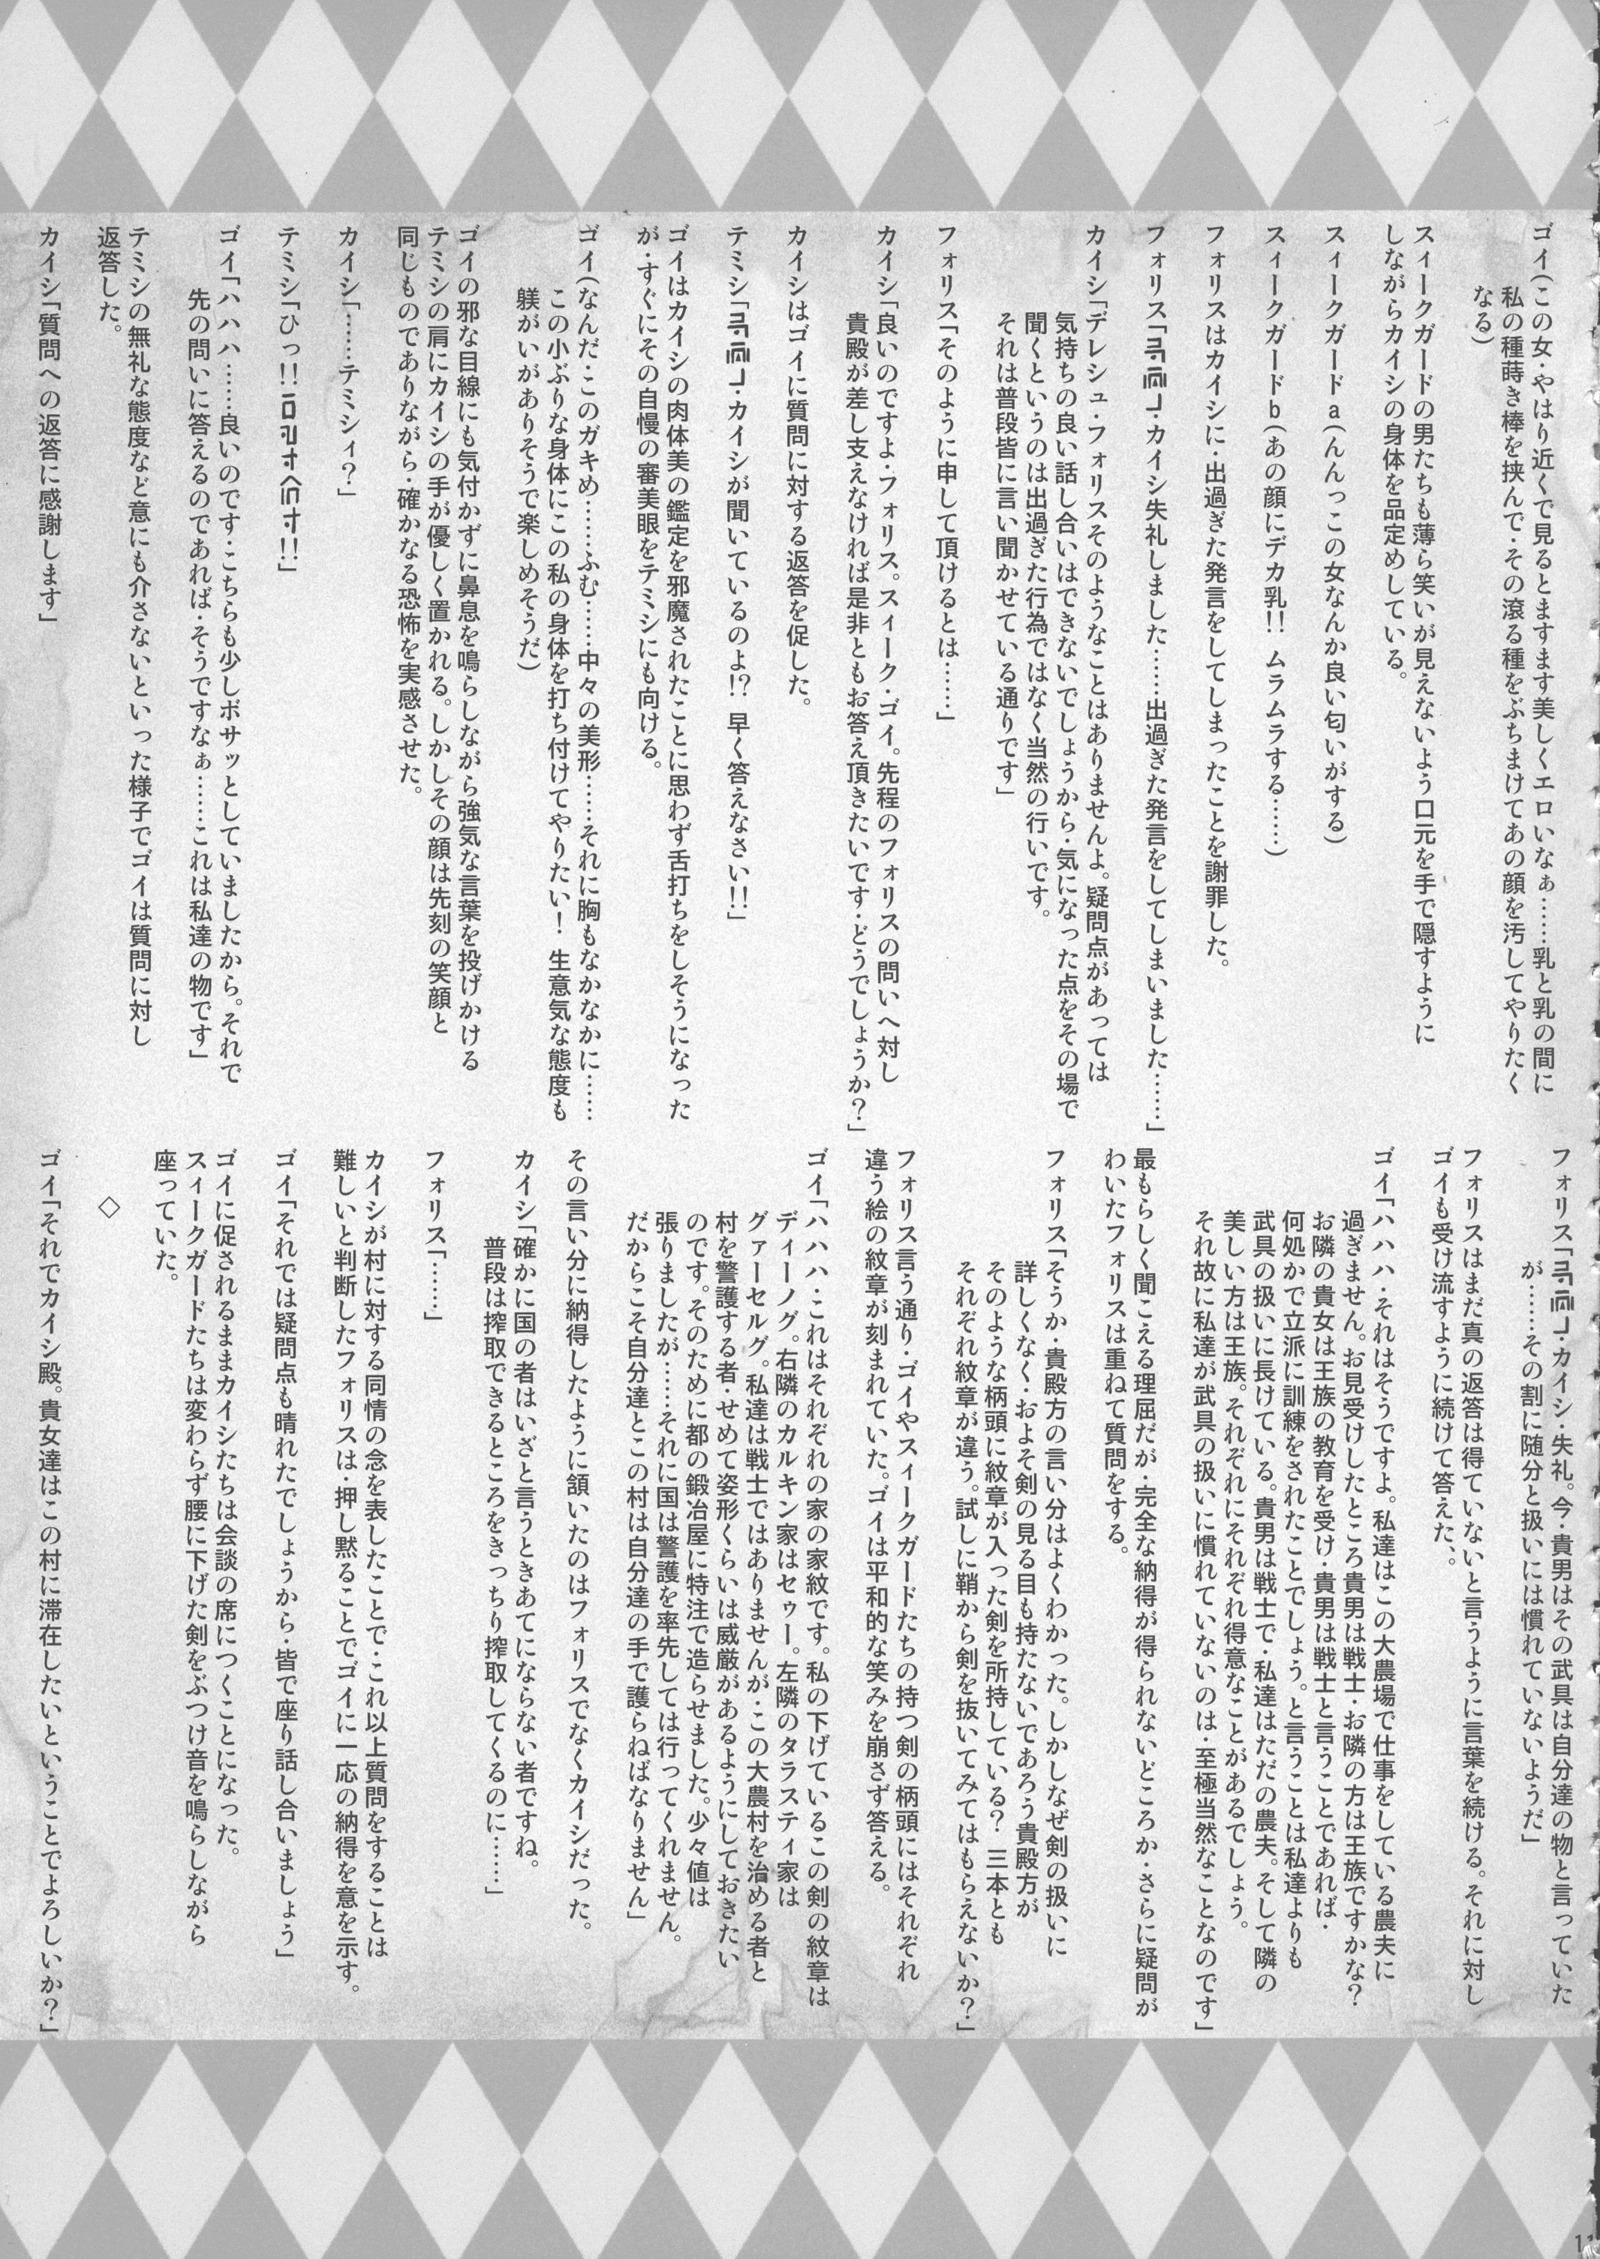 ゴイ(この女・やはり近くで見るとますます美しくエロいなぁ……乳と乳の間に
私の種蒔き棒を挟んで・その滾る種をぶちまけてあの顔を汚してやりたく
なる)
スィークガードの男たちも薄ら笑いが見えないよう口元を手で隠すように
しながらカイシの身体を品定めしている。
スィークガードa(んんっこの女なんか良い匂いがする)
スィークガードb(あの顔にデカ乳!! ムラムラする……)
フォリスはカイシに・出過ぎた発言をしてしまったことを謝罪した。
フォリス「・カイシ失礼しました……出過ぎた発言をしてしまいました……」
カイシ「デレシュ・フォリスそのようなことはありませんよ。疑問点があっては
気持ちの良い話し合いはできないでしょうから・気になった点をその場で
聞くというのは出過ぎた行為ではなく当然の行いです。
それは普段皆に言い聞かせている通りです」
フォリス「そのように申して頂けるとは……」
カイシ「良いのですよ・フォリス。スィーク・ゴイ。先程のフォリスの問いへ対し
貴殿が差し支えなければ是非ともお答え頂きたいです・どうでしょうか?」
カイシはゴイに質問に対する返答を促した。
テミシ「・カイシが聞いているのよ!? 早く答えなさい!!」
ゴイはカイシの肉体美の鑑定を邪魔されたことに思わず舌打ちをしそうになった
が・すぐにその自慢の審美眼をテミシにも向ける。
ゴイの邪な目線にも気付かずに鼻息を鳴らしながら強気な言葉を投げかける
テミシの肩にカイシの手が優しく置かれる。しかしその顔は先刻の笑顔と
同じものでありながら・確かなる恐怖を実感させた。
カイシ「……テミシィ?」
テミシ「ひっ!!!!」
ゴイ「ハハハ……良いのです・こちらも少しボサッとしていましたから。それで
先の問いに答えるのであれば・そうですなぁ……これは私達の物です」
テミシの無礼な態度など意にも介さないといった様子でゴイは質問に対し
返答した。
カイシ「質問への返答に感謝します」
フォリス「・カイシ・失礼。今・貴男はその武具は自分達の物と言っていた
が……その割に随分と扱いには慣れていないようだ」
フォリスはまだ真の返答は得ていないと言うように言葉を続ける。それに対し
ゴイも受け流すように続けて答えた、。
ゴイ「ハハハ・それはそうですよ。私達はこの大農場で仕事をしている農夫に
過ぎません。お見受けしたところ貴男は戦士・お隣の方は王族ですかな?
お隣の貴女は王族の教育を受け・貴男は戦士と言うことであれば・
何処かで立派に訓練をされたことでしょう。と言うことは私達よりも
武具の扱いに長けている。貴男は戦士で・私達はただの農夫。そして隣の
美しい方は王族。それぞれにそれぞれ得意なことがあるでしょう。
それ故に私達が武具の扱いに慣れていないのは・至極当然なことなのです」
最もらしく聞こえる理屈だが・完全な納得が得られないどころか・さらに疑問が
わいたフォリスは重ねて質問をする。
フォリス「そうか・貴殿方の言い分はよくわかった。しかしなぜ剣の扱いに
詳しくなく・およそ剣の見る目も持たないであろう貴殿方が
そのような柄頭に紋章が入った剣を所持している? 三本とも
それぞれ紋章が違う。試しに鞘から剣を抜いてみてはもらえないか?」
フォリス言う通り・ゴイやスィークガードたちの持つ剣の柄頭にはそれぞれ
違う絵の紋章が刻まれていた。ゴイは平和的な笑みを崩さず答える。
ゴイ「ハハハ・これはそれぞれの家の家紋です。私の下げているこの剣の紋章は
ディーノグ。右隣のカルキン家はセゥー。左隣のタラスティ家は
グァーセルグ。私達は戦士ではありませんが・この大農村を治める者と
村を警護する者・せめて姿形くらいは威厳があるようにしておきたい
のです。そのために都の鍛冶屋に特注で造らせました。少々値は
張りましたが……それに国は警護を率先しては行ってくれません。
だからこそ自分達とこの村は自分達の手で護らねばなりません」
その言い分に納得したように頷いたのはフォリスでなくカイシだった。
カイシ「確かに国の者はいざと言うときあてにならない者ですね。
普段は搾取できるところをきっちり搾取してくるのに……」
フォリス「……」
カイシが村に対する同情の念を表したことで・これ以上質問をすることは
難しいと判断したフォリスは・押し黙ることでゴイに一応の納得を意を示す。
ゴイ「それでは疑問点も晴れたでしょうから・皆で座り話し合いましょう」
ゴイに促されるままカイシたちは会談の席につくことになった。
スィークガードたちは変わらず腰に下げた剣をぶつけ音を鳴らしながら
座っていた。
◇
ゴイ「それでカイシ殿。貴女達はこの村に滞在したいということでよろしいか?」
11